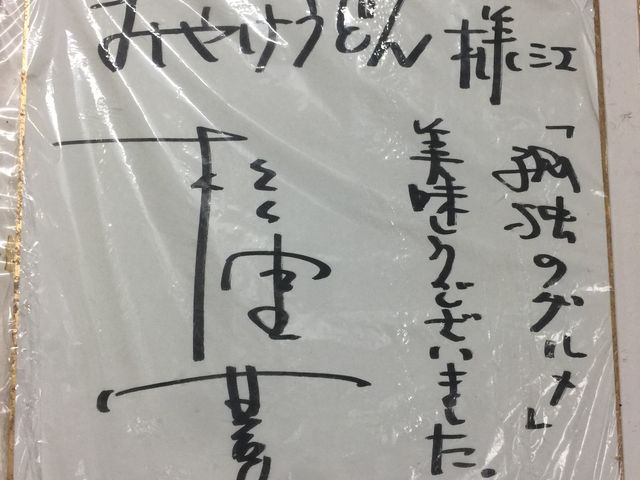 みやけうどん様江
「孤独のグルメ」
美味しゅうございました。
松重豊